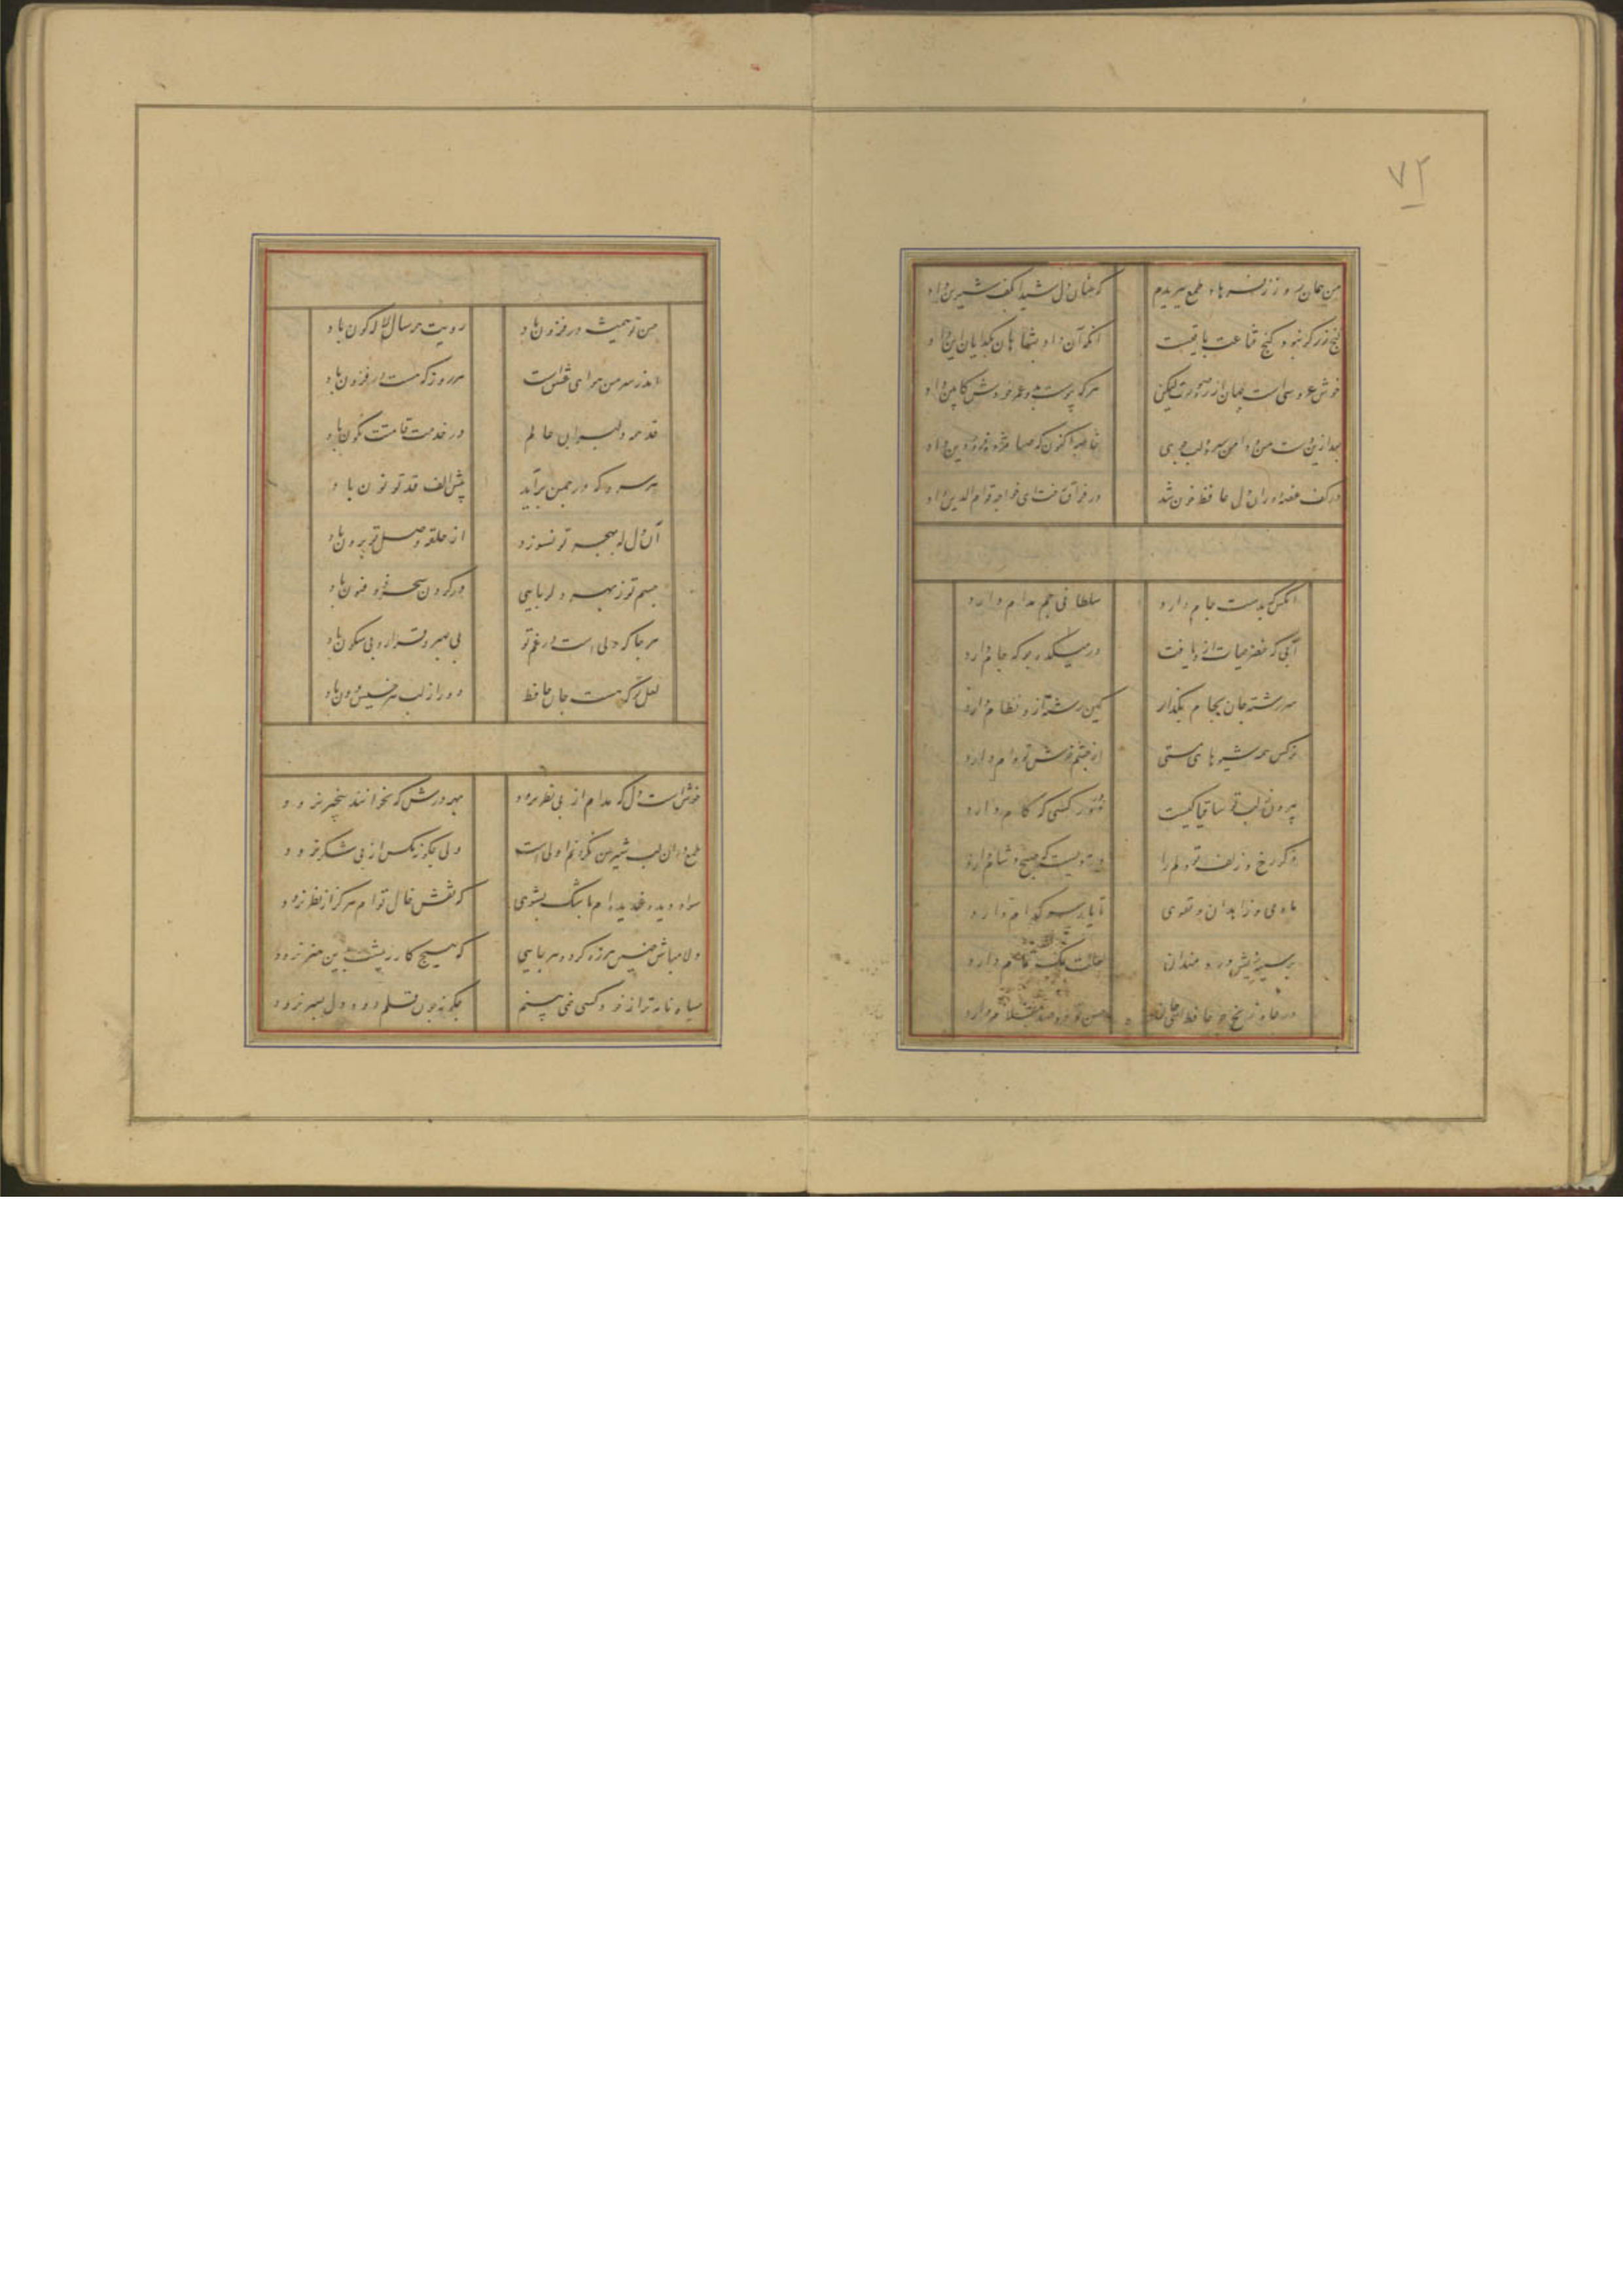 ۷۲
من همان روز ز فرهاد طمع ببریدم که عنان دل شیدا بکف شیرین داد
گنج زر گر نبود کنج قناعت باقیست آنکه آن داد بشاهان بگدایان این داد
خوش عروسی است جهان از ره صورت لیکن هرکه پیوست بدو عمر خودش کابین داد
بعد ازین دست من و دامن سرو و لب جوی خاصه اکنون که صبا مژده فروردین داد
در کف غصه دوران دل حافظ خون شد در فراق رخت ای خواجه قوام الدین داد
آنکس که بدست جام دارد سلطانی جم مدام دارد
آبی که خضر حیات ازو یافت در میکده جو که جام دارد
سررشته جان بجام بگذار کین رشته ازو نظام دارد
نرگس همه شیوهای مستی از چشم خوشت بوام دارد
بیرون ز لب تو ساقیا نیست در دور کسی که کام دارد
ذکر رخ و زلف تو دلم را وردیست که صبح و شام دارد
ما و می و زاهدان و تقوی تا یار سر کدام دارد
بر سینه ریش دردمندان لعلت نمک تمام دارد
در چاه زنخ چو حافظ ای جان حسن تو دو صد غلام دارد
حسن تو همیشه در فزون باد رویت همه سال لاله گون باد
اندر سر من هوای عشقت هر روز که هست در فزون باد
قد همه دلبران عالم در خدمت قامتت نگون باد
هر سرو که در چمن برآید پیش الف قد تو نون باد
آن دل که بهجر تو نسوزد از حلقه وصل تو برون باد
چشم تو ز بهر دلربایی در کردن سحر ذو فنون باد
هر جا که دلی است در غم تو بی صبر و قرار و بی سکون باد
لعل تو که هست جان حافظ دور از لب هر خسیس دون باد
خوش است دل که مدام از پی نظر نرود بهر درش که بخوانند بیخبر نرود
طمع در آن لب شیرین نکردنم اولی است ولی چگونه مگس از پی شکر نرود
سواد دیده غمدیده ام باشک بشوی که نقش خال توام هرگز از نظر نرود
دلا مباش چنین هرزه گرد و هر جایی که هیچ کار ز پیشت بدین هنر نرود
سیاه نامه تر از خود کسی نمی بینم چگونه چون قلمم دود دل بسر نرود